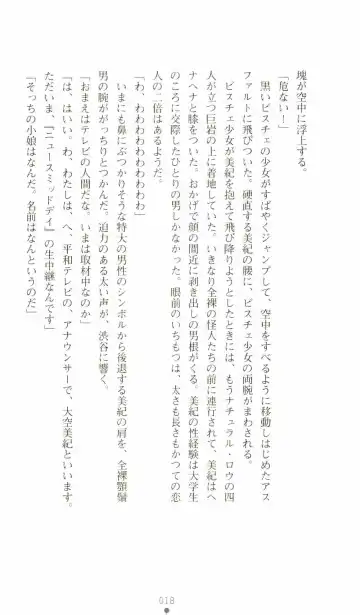 塊が空中に浮上する。
「危ない！」
　黒いビスチェの少女がすばやくジャンプして、空中をすべるように移動しはじめたアス
ファルトに飛びついた。硬直する美紀の腰に、ビスチェ少女の両腕がまわされる。
　ビスチェ少女が美紀を抱えて飛び降りようとしたときには、もうナチュラル・ロウの四
人が立つ巨岩の上に着地していた。いきなり全裸の怪人たちの前に連行されて、美紀はヘ
ナヘナと膝をついた。おかげで顔の間近に剥き出しの男根がくる。美紀の性経験は大学生
のころに交際したひとりの男しかなかった。眼前のいちもつは、太さも長さもかつての恋
人の二倍はあるようだ。
「わ、わわわわわわわわわ」
　いまにも鼻にぶつかりそうな特大の男性のシンボルから後退する美紀の肩を、全裸顎鬚
男の腕ががっちりとつかんだ。迫力のある太い声が、渋谷に響く。
「おまえはテレビの人間だな。いまは取材中なのか」
「は、はい。わ、わたしは、へ、平和テレビの、アナウンサーで、大空美紀といいます。
ただいま、『ニュースミッドデイ』の生中継なんです」
「そっちの小娘はなんだ。名前はなんというのだ」
018